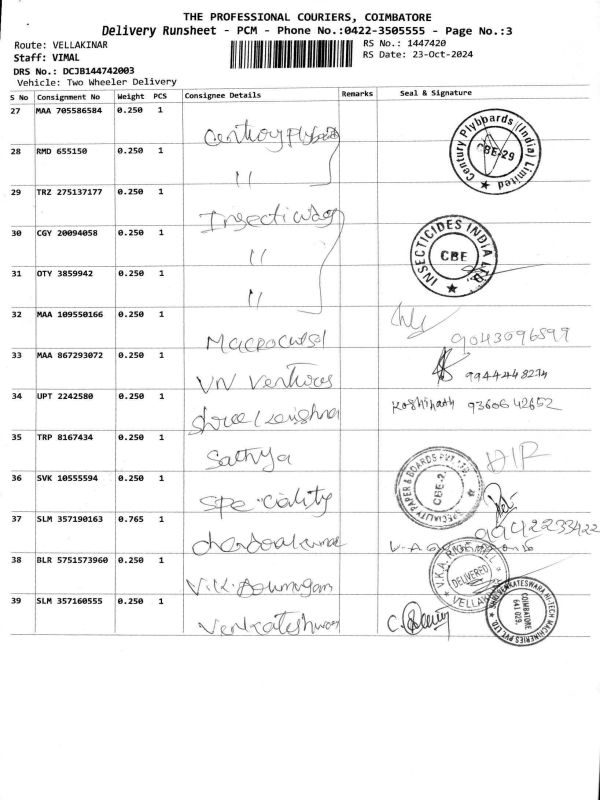 THE PROFESSIONAL COURIERS, COIMBATORE
Delivery Runsheet - PCM - Phone No.:0422-3505555 - Page No.:3
Route: VELLAKINAR
RS No.: 1447420
Staff: VIMAL
RS Date: 23-Oct-2024
DRS No.: DCJB144742003
Vehicle: Two Wheeler Delivery
S No Consignment No Weight PCS Consignee Details Remarks Seal & Signature
27 MAA 705586584 0.250 1
Century Plyboards (India) Limited
CBE-29
28 RMD 655150 0.250 1
"
29 TRZ 275137177 0.250 1
30 CGY 20094058 0.250 1
"
INSECTICIDES INDIA LTD.
CBE
31 OTY 3859942 0.250 1
"
32 MAA 109550166 0.250 1
33 MAA 867293072 0.250 1
VN Ventures
34 UPT 2242580 0.250 1
Shree Krishna
35 TRP 8167434 0.250 1
Sathya
36 SVK 10555594 0.250 1
Speciality
SPECIALITY PAPER & BOARDS PVT. LTD.
37 SLM 357190163 0.765 1
9942233422
38 BLR 5751573960 0.250 1
V.K.
DELIVERED
VELLAKINAR
39 SLM 357160555 0.250 1
SHRI VENKATESWARA HI-TECH MACHINERIES PVT LTD.
COIMBATORE
641 029.